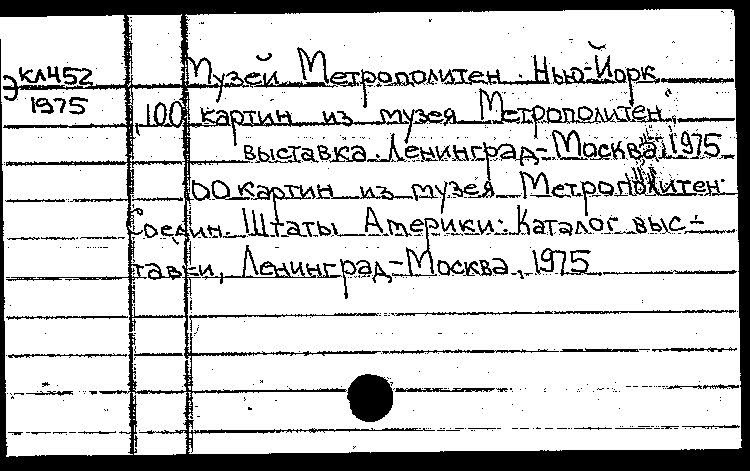 Э КЛ452
1975
Музей Метрополитен. Нью-Йорк
„100 картин из музея Метрополитен",
выставка. Ленинград-Москва, 1975
100 картин из музея Метрополитен.
Соедин. Штаты Америки: Каталог выс-
тавки, Ленинград-Москва, 1975